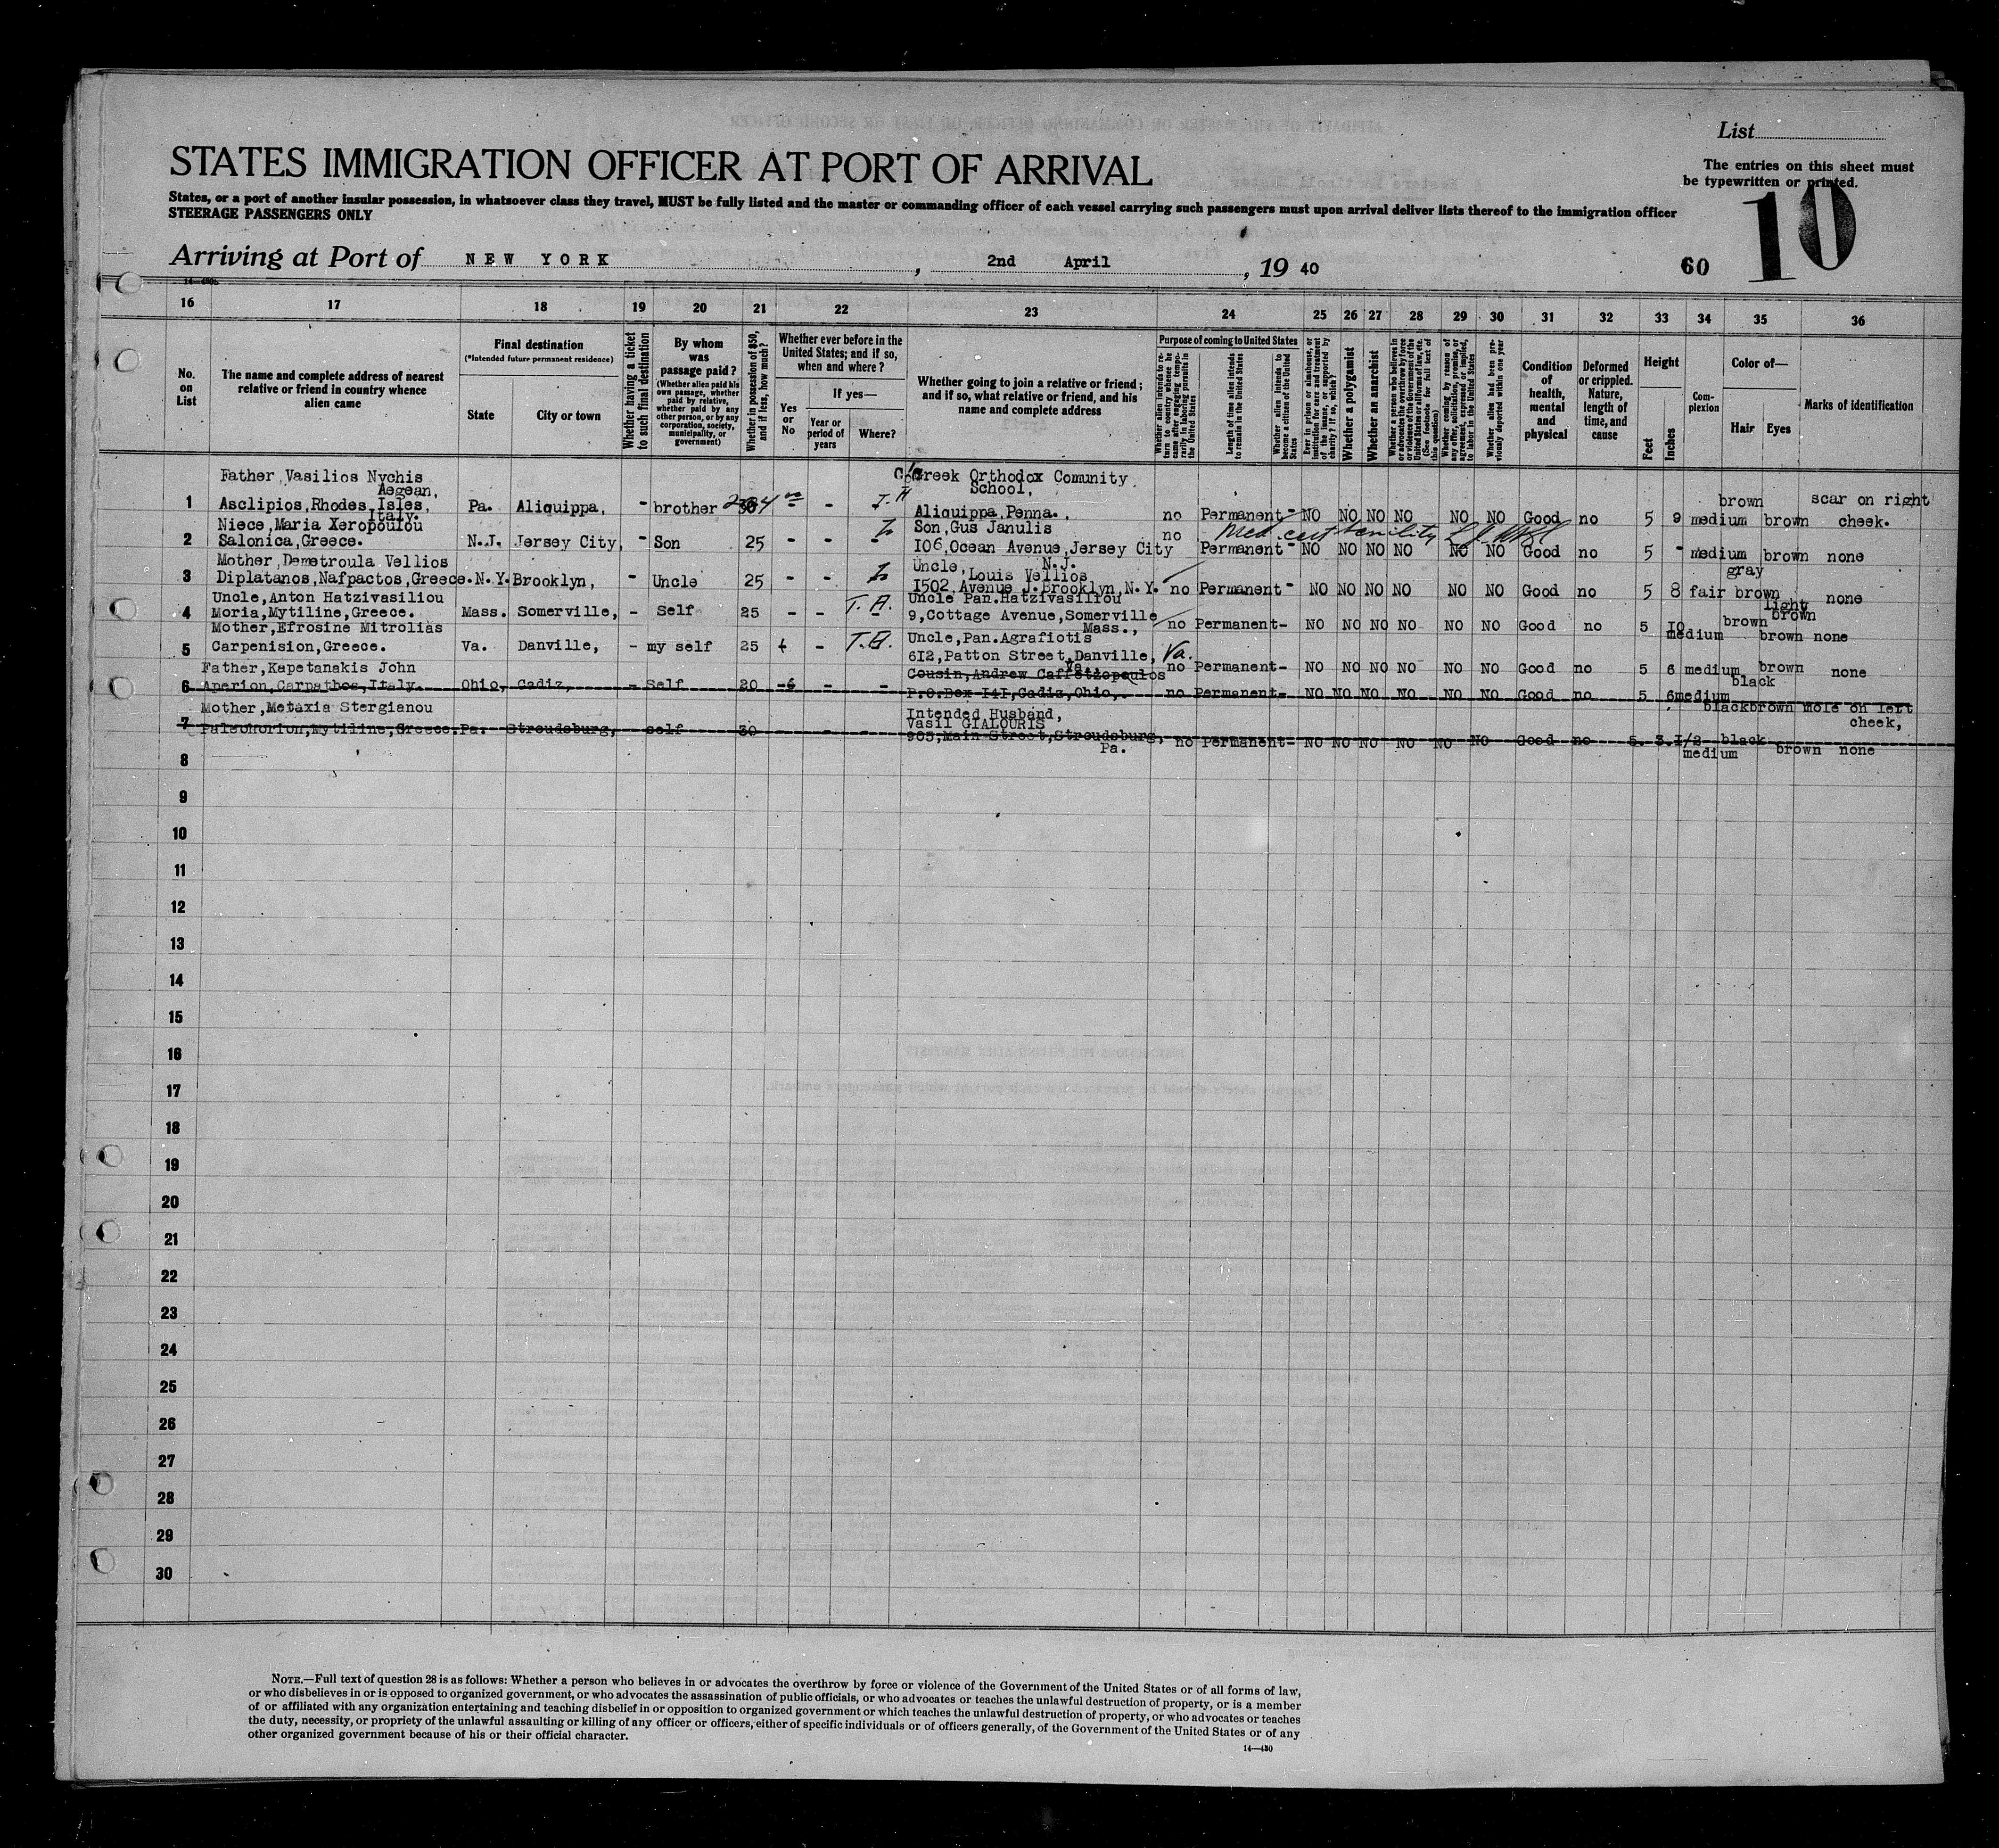 List
STATES IMMIGRATION OFFICER AT PORT OF ARRIVAL
The entries on this sheet must
be typewritten or printed.
States, or a port of another insular possession, in whatsoever class they travel, MUST be fully listed and the master or commanding officer of each vessel carrying such passengers must upon arrival deliver lists thereof to the immigration officer
STEERAGE PASSENGERS ONLY
10
Arriving at Port of NEW YORK, 2nd April, 19 40
60
16 17 18 19 20 21 22 23 24 25 26 27 28 29 30 31 32 33 34 35 36
No. on List
The name and complete address of nearest relative or friend in country whence alien came
Final destination
(*Intended future permanent residence)
State
City or town
Whether having a ticket to such final destination
By whom was passage paid?
(Whether alien paid his own passage, whether paid by relative, whether paid by any other person, or by any corporation, society, municipality, or government)
Whether in possession of $50, and if less, how much?
Whether ever before in the United States; and if so, when and where?
Yes or No
If yes—
Year or period of years
Where?
Whether going to join a relative or friend; and if so, what relative or friend, and his name and complete address
Purpose of coming to United States
Whether alien intends to return to country whence he came after engaging temporarily in laboring pursuits in the United States
Length of time alien intends to remain in the United States
Whether alien intends to become a citizen of the United States
Ever in prison or almshouse, or institution for care and treatment of the insane, or supported by charity? If so, which?
Whether a polygamist
Whether an anarchist
Whether a person who believes in or advocates the overthrow by force or violence of the Government of the United States or all forms of law, etc. (See footnote for full text of this question)
Whether coming by reason of any offer, solicitation, promise, or agreement, expressed or implied, to labor in the United States
Whether alien had been previously deported within one year
Condition of health, mental and physical
Deformed or crippled. Nature, length of time, and cause
Height
Feet
Inches
Complexion
Color of—
Hair
Eyes
Marks of identification
Father,Vasilios Nychis
Aegean,
1 Asclipios,Rhodes Isles, Pa. Aliquippa, - brother - T.H
Italy.
C/o Greek Orthodox Comunity
School,
Aliquippa,Penna., no Permanent- NO NO NO NO NO NO Good no 5 9 medium brown brown scar on right
cheek.
Niece,Maria Xeropoulou
2 Salonica,Greece. N.J. Jersey City, - Son 25 - - -
Son,Gus Janulis
106,Ocean Avenue,Jersey City
N.J.
no Permanent- NO NO NO NO NO NO Good no 5 - medium gray brown none
Med. cert senility
Mother,Demetroula Vellios
3 Diplatanos,Nafpactos,Greece. N.Y. Brooklyn, - Uncle 25 - -
Uncle,
Louis Vellios
1502,Avenue J.Brooklyn,N.Y. no Permanent- NO NO NO NO NO NO Good no 5 8 fair brown light brown none
Uncle,Anton Hatzivasiliou
4 Moria,Mytiline,Greece. Mass. Somerville, - Self 25 - - T.H.
Uncle Pan.Hatzivasiliou
9,Cottage Avenue,Somerville
Mass.,
no Permanent- NO NO NO NO NO NO Good no 5 10 medium brown brown none
Mother,Efrosine Mitrolias
5 Carpenision,Greece. Va. Danville, - my self 25 - T.H.
Uncle,Pan.Agrafiotis
612,Patton Street,Danville, Va.
Va.
no Permanent- NO NO NO NO NO NO Good no 5 6 medium black brown none
Father,Kapetanakis John
6 Aperion,Carpathos,Italy. Ohio, Cadiz, - Self 20 - -
Cousin,Andrew Caffetzopoulos
P.O.Box 141,Cadiz,Ohio,. no Permanent- NO NO NO NO NO NO Good no 5 6 medium black brown mole on left
cheek,
Mother,Metaxia Stergianou
7 Paleohorion,Mytiline,Greece. Pa. Stroudsburg, self 30 - -
Intended Husband,
Vasil GIALOURIS
905,Main Street,Stroudsburg,
Pa.
no Permanent- NO NO NO NO NO NO Good no 5. 3.1/2 medium black brown none
8
9
10
11
12
13
14
15
16
17
18
19
20
21
22
23
24
25
26
27
28
29
30
NOTE.—Full text of question 28 is as follows: Whether a person who believes in or advocates the overthrow by force or violence of the Government of the United States or of all forms of law,
or who disbelieves in or is opposed to organized government, or who advocates the assassination of public officials, or who advocates or teaches the unlawful destruction of property, or is a member
of or affiliated with any organization entertaining and teaching disbelief in or opposition to organized government or which teaches the unlawful destruction of property, or who advocates or teaches
the duty, necessity, or propriety of the unlawful assaulting or killing of any officer or officers, either of specific individuals or of officers generally, of the Government of the United States or of any
other organized government because of his or their official character.
14—430